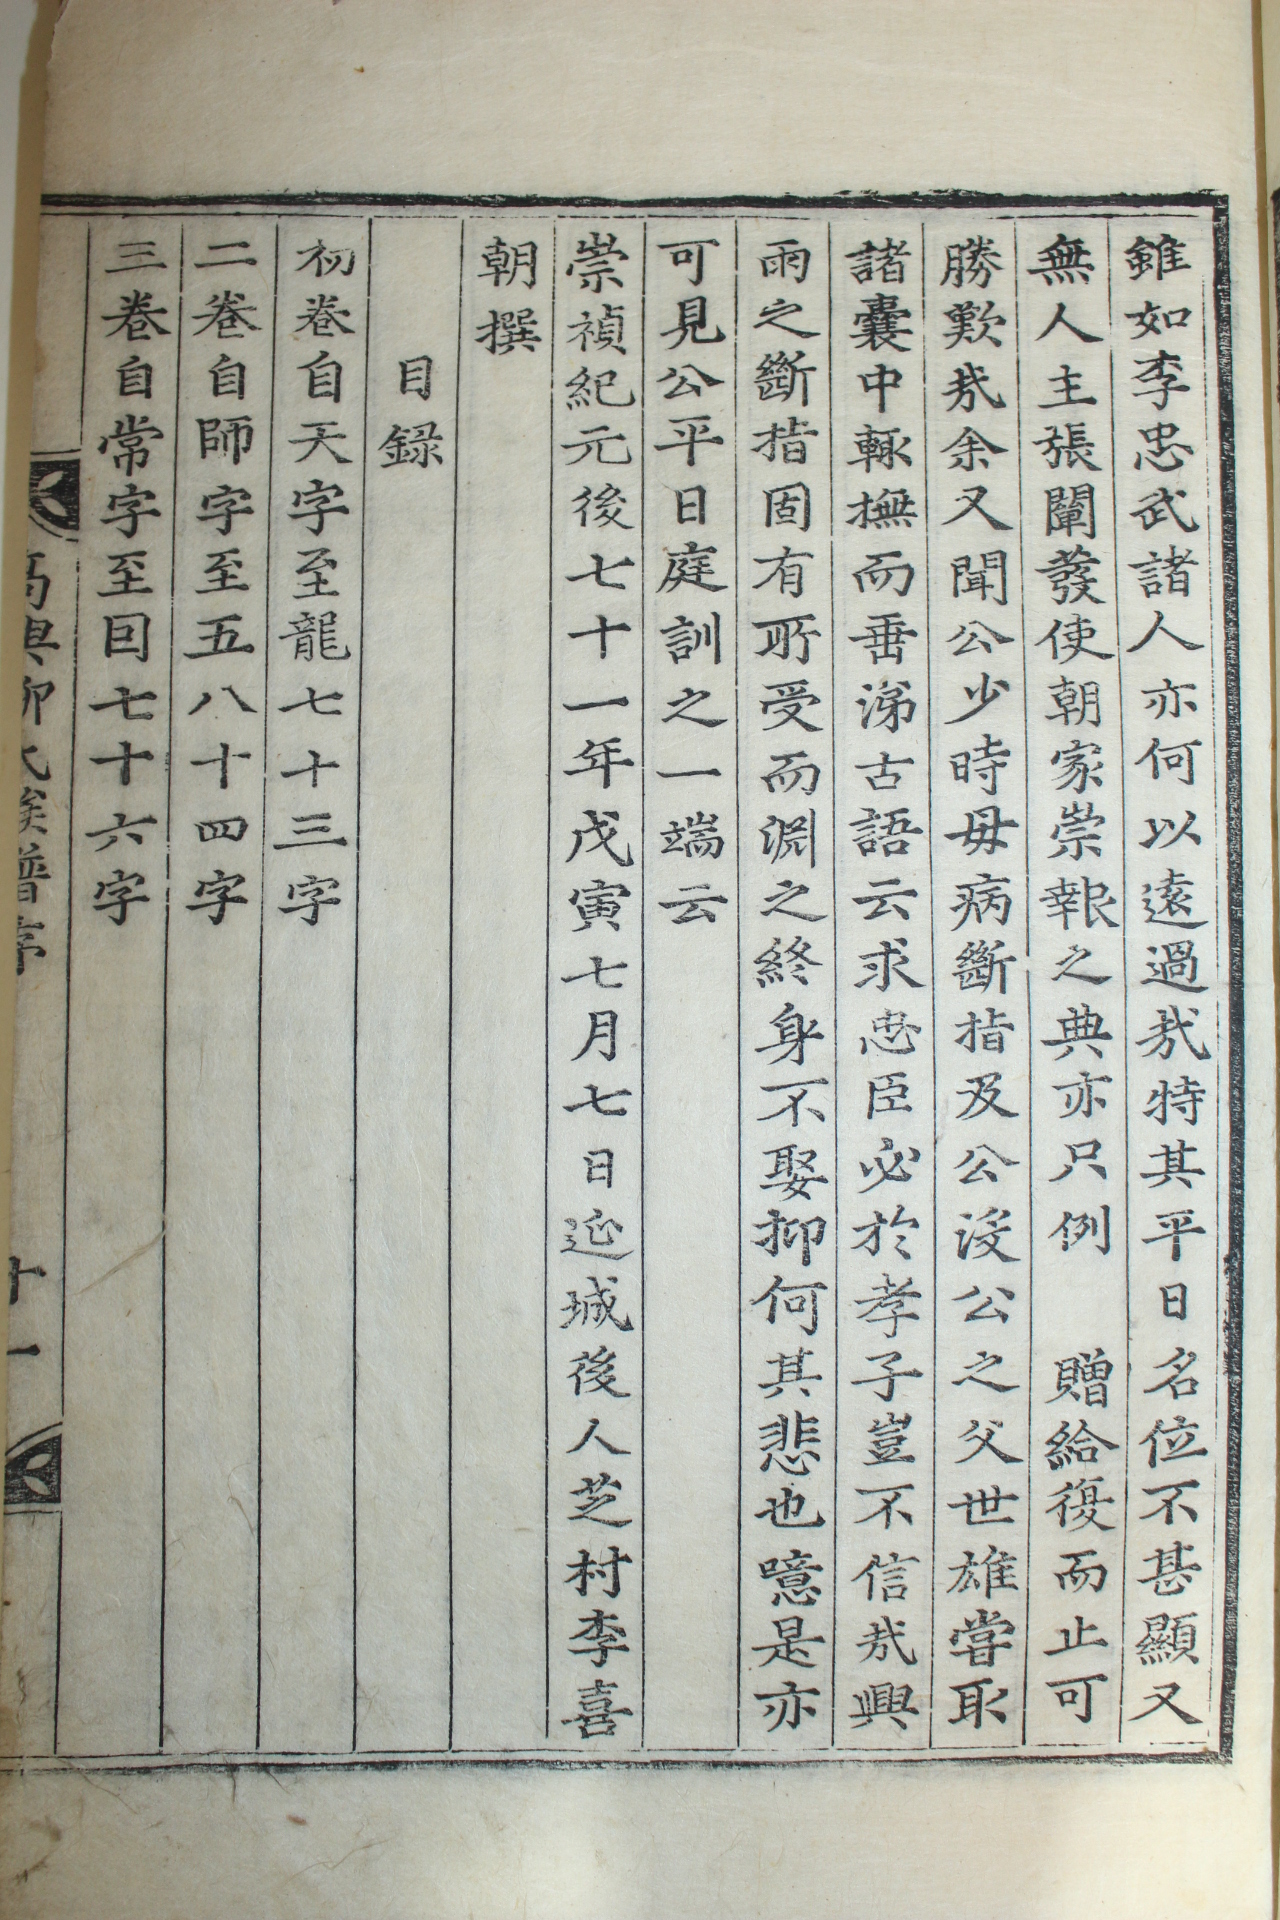 雖如李忠武諸人亦何以遠過㢤特其平日名位不甚顯又
無人主張闡發使朝家崇報之典亦只例　贈給復而止可
勝歎㢤余又聞公少時母病斷指及公沒公之父世雄嘗取
諸囊中輒撫而垂涕古語云求忠臣必於孝子豈不信㢤興
雨之斷指固有所受而淵之終身不娶抑何其悲也噫是亦
可見公平日庭訓之一端云
崇禎紀元後七十一年戊寅七月七日延城後人芝村李喜
朝撰
目錄
初卷自天字至龍七十三字
二卷自師字至五八十四字
三卷自常字至囙七十六字
高興柳氏族譜序
十一